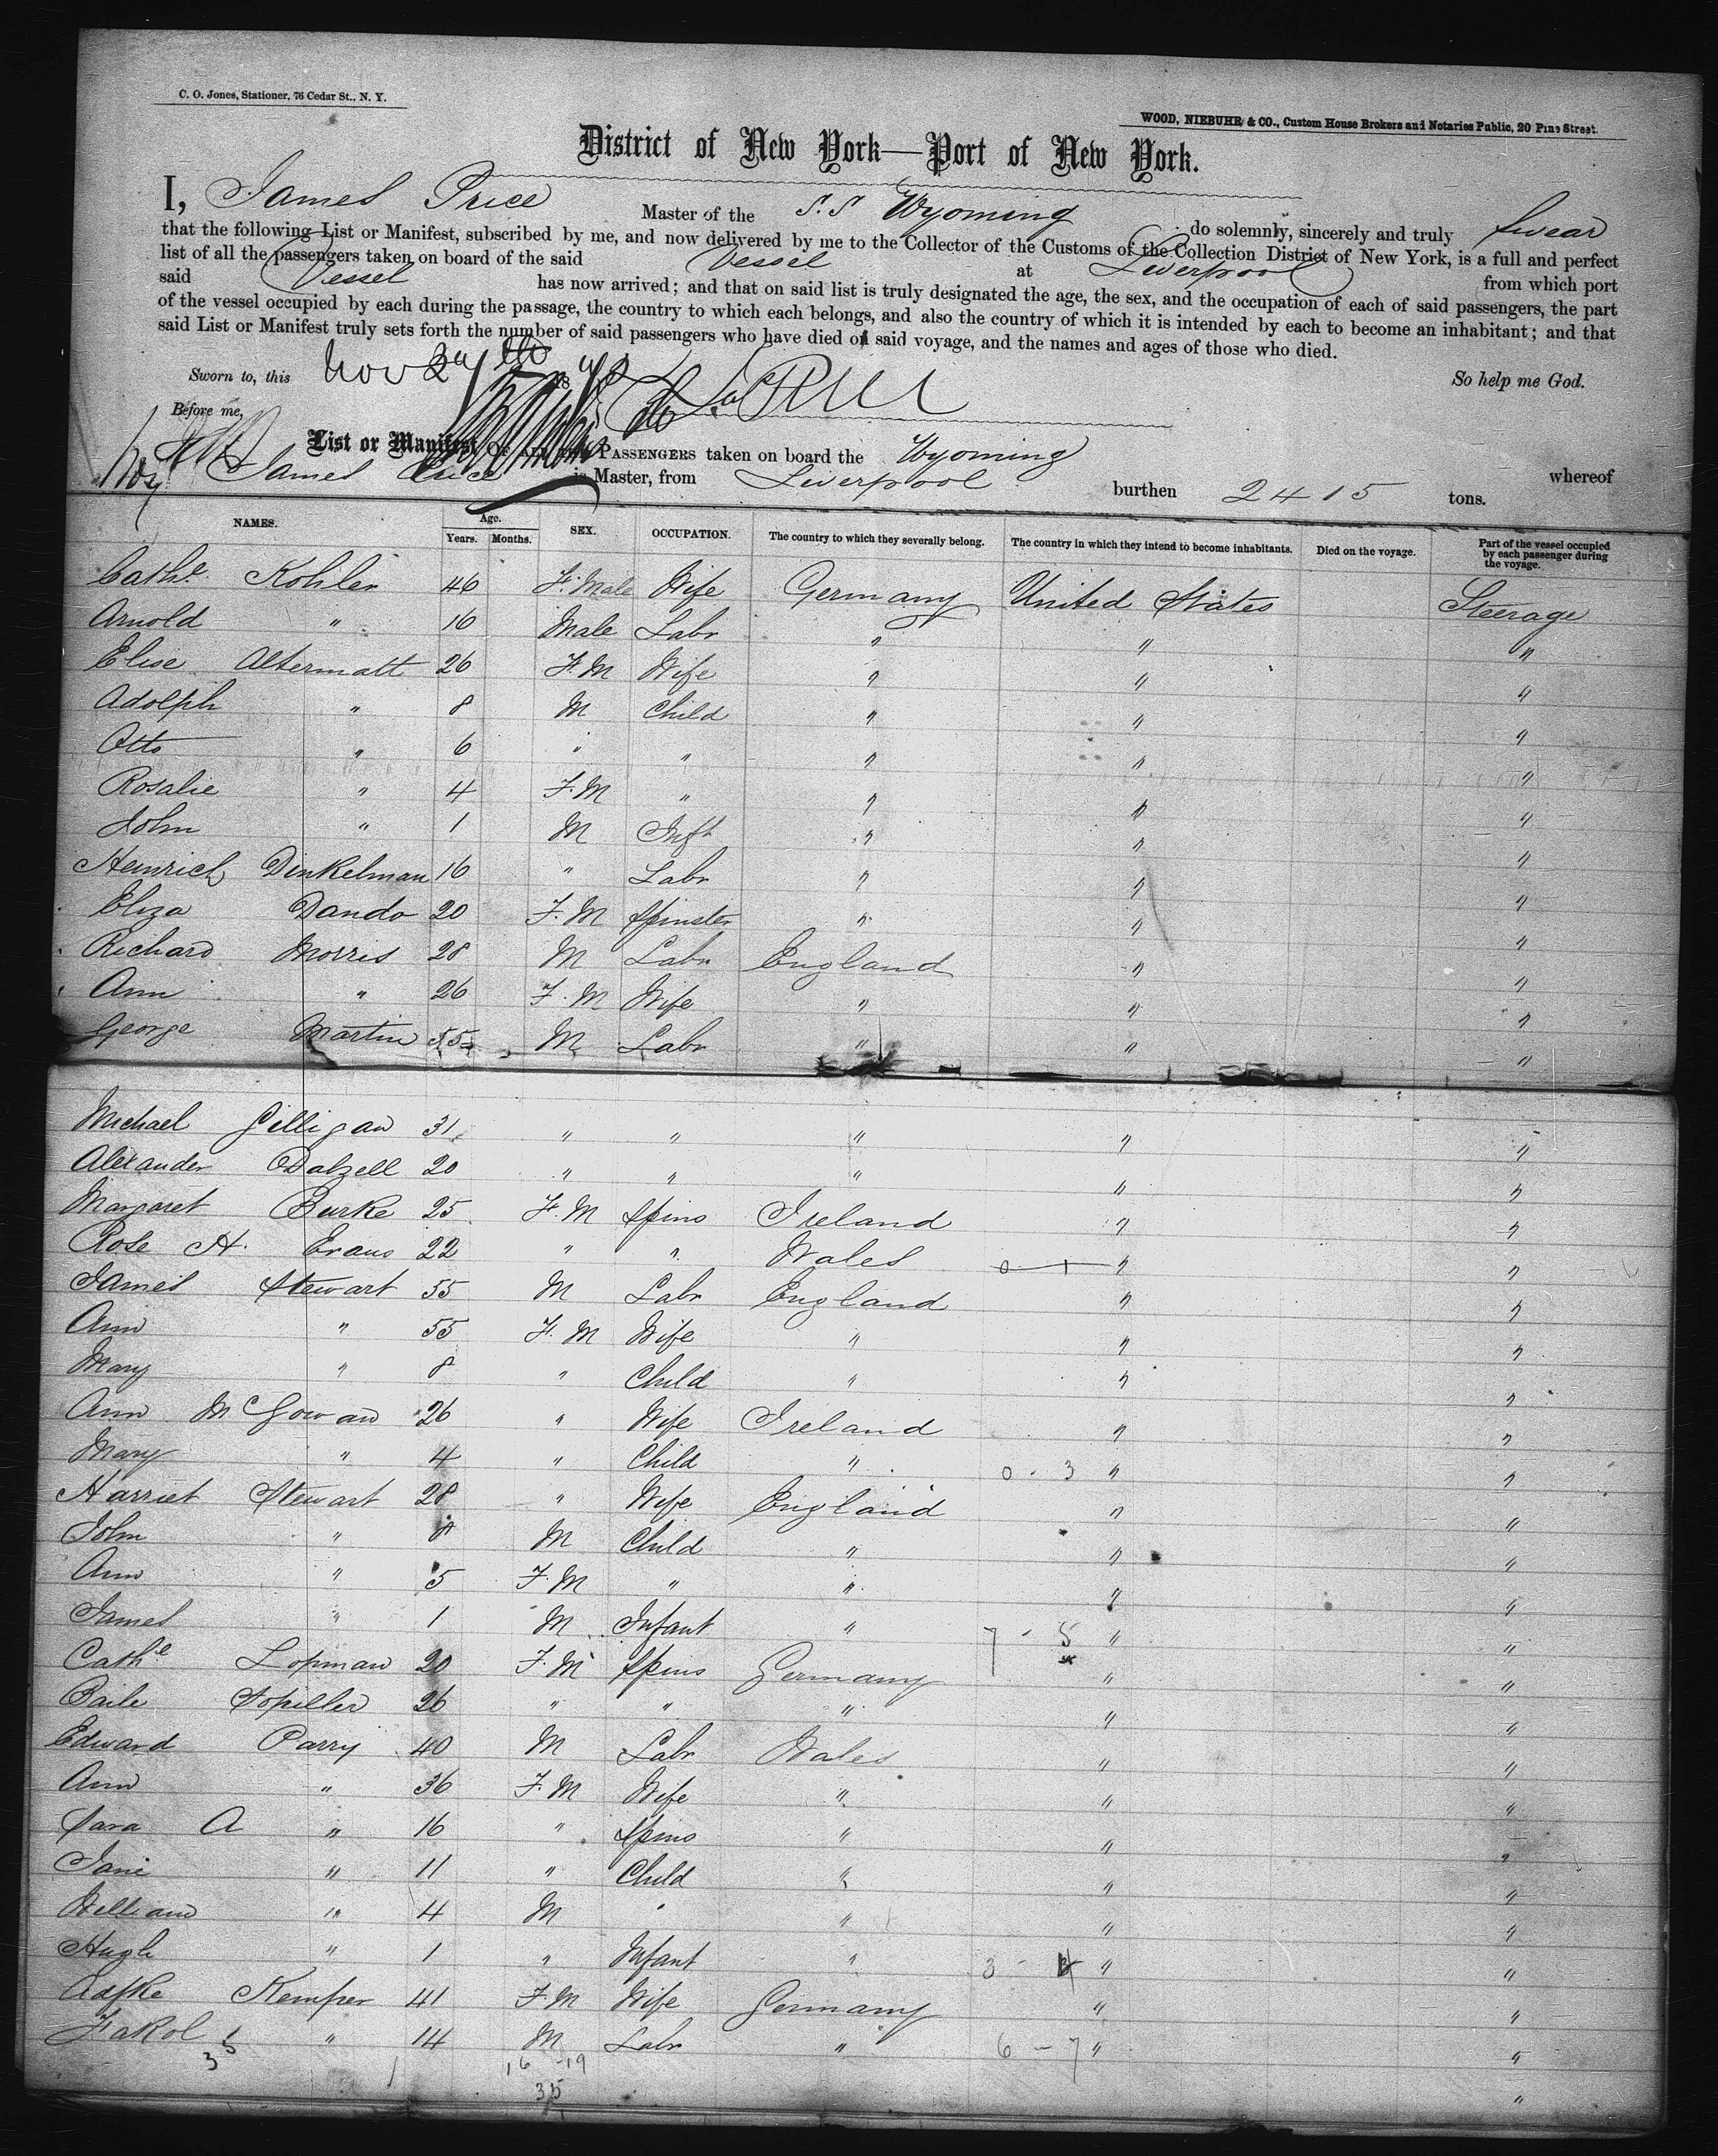 C. O. Jones, Stationer, 76 Cedar St., N. Y.
WOOD, NIEBUHR & CO., Custom House Brokers and Notaries Public, 20 Pine Street.
District of New York—Port of New York.
I, James Price Master of the S.S Wyoming do solemnly, sincerely and truly swear
that the following List or Manifest, subscribed by me, and now delivered by me to the Collector of the Customs of the Collection District of New York, is a full and perfect
list of all the passengers taken on board of the said Vessel at Liverpool from which port
said Vessel has now arrived; and that on said list is truly designated the age, the sex, and the occupation of each of said passengers, the part
of the vessel occupied by each during the passage, the country to which each belongs, and also the country of which it is intended by each to become an inhabitant; and that
said List or Manifest truly sets forth the number of said passengers who have died on said voyage, and the names and ages of those who died.
Sworn to, this Nov 18 So help me God.
Before me,
List or Manifest OF ALL THE PASSENGERS taken on board the Wyoming whereof
James Price is Master, from Liverpool burthen 2415 tons.
NAMES. Age. Years. Months. SEX. OCCUPATION. The country to which they severally belong. The country in which they intend to become inhabitants. Died on the voyage. Part of the vessel occupied by each passenger during the voyage.
Cathe Kohler 46 F. Male Wife Germany United States Steerage
Arnold " 16 Male Labr " " "
Elise Altermatt 26 F. M Wife " " "
Adolph " 8 M Child " " "
Otto " 6 " " " " "
Rosalie " 4 F. M " " " "
John " 1 M Inft " " "
Heinrich Dinkelman 16 " Labr " " "
Eliza Dando 20 F. M Spinster " " "
Richard Morris 28 M Labr England " "
Ann " 26 F. M Wife " " "
George Martin 55 M Labr " " "
Michael Gilligan 31 " " " " "
Alexander Dalzell 20 " " " " "
Margaret Burke 25 F. M Spins Ireland " "
Rose H. Evans 22 " " Wales 0 - 1 " "
James Stewart 55 M Labr England " "
Ann " 55 F. M Wife " " "
Mary " 8 " Child " " "
Ann McGowan 26 " Wife Ireland " "
Mary " 4 " Child " 0 - 3 " "
Harriet Stewart 28 " Wife England " "
John " 8 M Child " " "
Ann " 5 F. M " " " "
James " 1 M Infant " 7 - 5 " "
Cathe Lopman 20 F. M Spins Germany " "
Baile Sopiller 26 " " " " "
Edward Parry 40 M Labr Wales " "
Ann " 36 F. M Wife " " "
Sara A " 16 " Spins " " "
Jane " 11 " Child " " "
William " 4 M " " " "
Hugh " 1 " Infant " 3 - " "
Kemper 41 F. M Wife Germany " "
" 14 M Labr " 6 - 7 " "
35 16 - 19
35